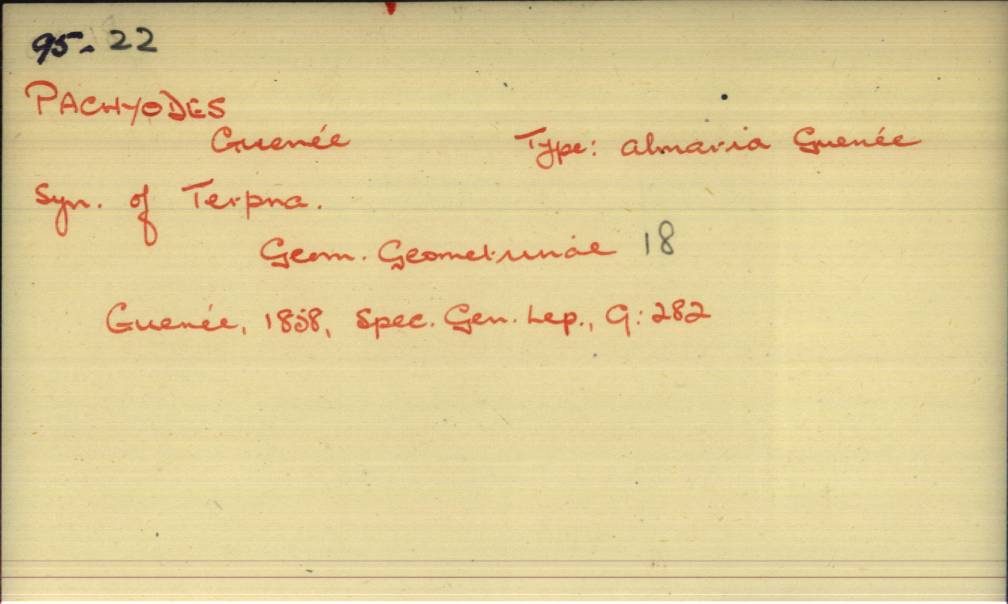 95-22
PACHYODES
Guenée Type: almaria Guenée
Syn. of Terpna.
Geom. Geometrinae 18
Guenée, 1858, Spec. Gen. Lep., 9:282